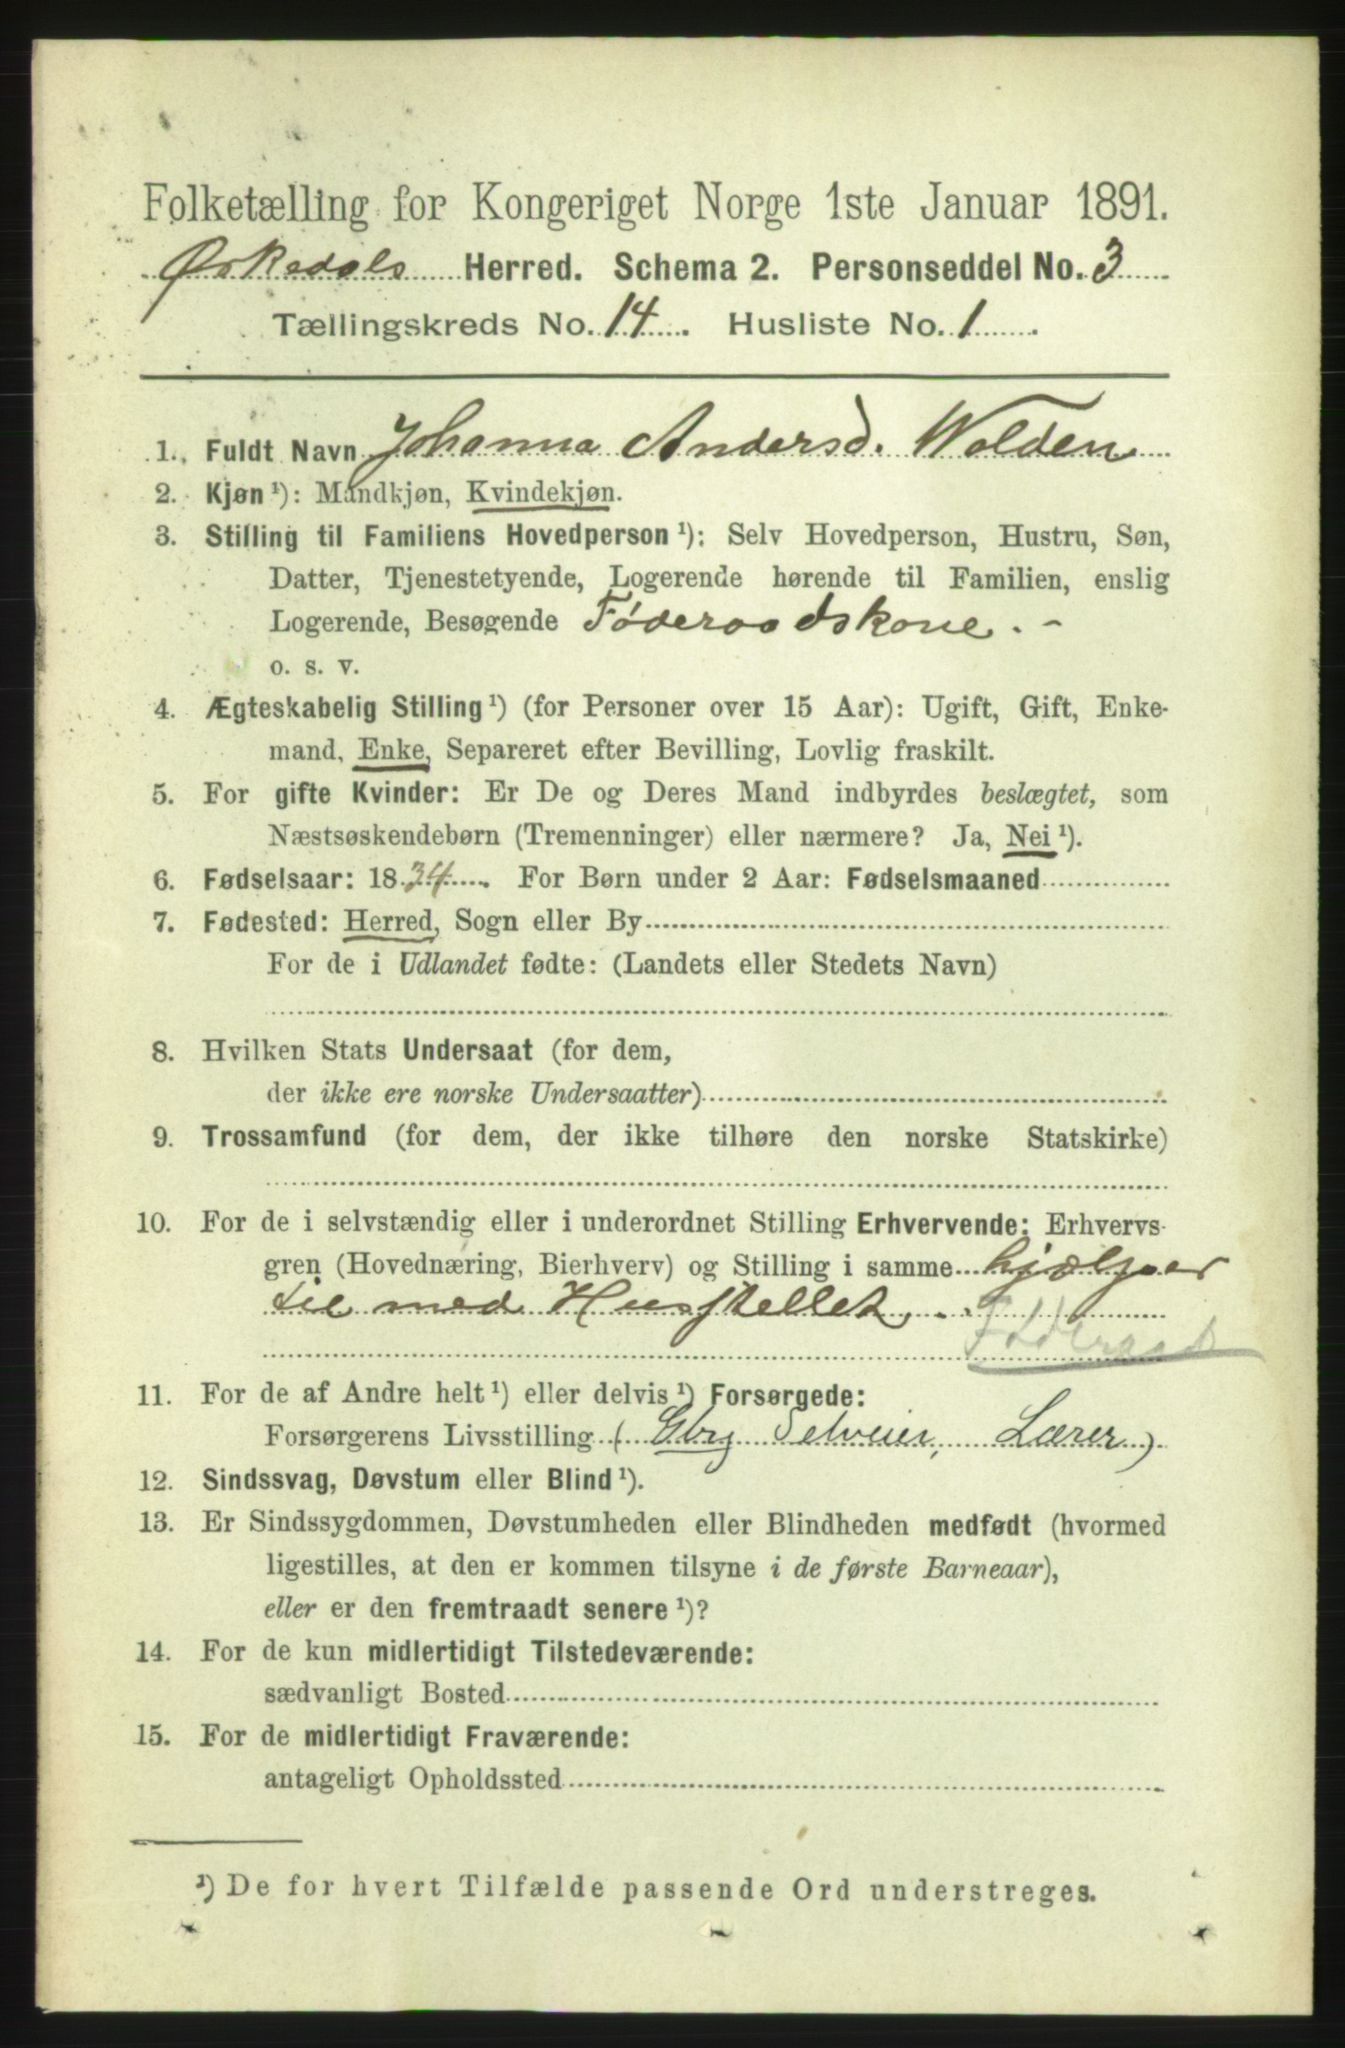 Folketælling for Kongeriget Norge 1ste Januar 1891.
Ørkedals Herred. Schema 2. Personseddel No. 3
Tællingskreds No. 14. Husliste No. 1.
1. Fuldt Navn Johanna Andersd. Wolden
2. Kjøn ¹): Mandkjøn, Kvindekjøn.
3. Stilling til Familiens Hovedperson ¹): Selv Hovedperson, Hustru, Søn,
Datter, Tjenestetyende, Logerende hørende til Familien, enslig
Logerende, Besøgende Føderaadskone. -
o. s. v.
4. Ægteskabelig Stilling ¹) (for Personer over 15 Aar): Ugift, Gift, Enke-
mand, Enke, Separeret efter Bevilling, Lovlig fraskilt.
5. For gifte Kvinder: Er De og Deres Mand indbyrdes beslægtet, som
Næstsøskendebørn (Tremenninger) eller nærmere? Ja, Nei ¹).
6. Fødselsaar: 1834. For Børn under 2 Aar: Fødselsmaaned
7. Fødested: Herred, Sogn eller By
For de i Udlandet fødte: (Landets eller Stedets Navn)
8. Hvilken Stats Undersaat (for dem,
der ikke ere norske Undersaatter)
9. Trossamfund (for dem, der ikke tilhøre den norske Statskirke)
10. For de i selvstændig eller i underordnet Stilling Erhvervende: Erhvervs-
gren (Hovednæring, Bierhverv) og Stilling i samme hjælper
til med Husstellet.
Føderaad
11. For de af Andre helt ¹) eller delvis ¹) Forsørgede:
Forsørgerens Livsstilling (Gbrg Selveier, Lærer)
12. Sindssvag, Døvstum eller Blind ¹).
13. Er Sindssygdommen, Døvstumheden eller Blindheden medfødt (hvormed
ligestilles, at den er kommen tilsyne i de første Barneaar),
eller er den fremtraadt senere ¹)?
14. For de kun midlertidigt Tilstedeværende:
sædvanligt Bosted
15. For de midlertidigt Fraværende:
antageligt Opholdssted
¹) De for hvert Tilfælde passende Ord understreges.